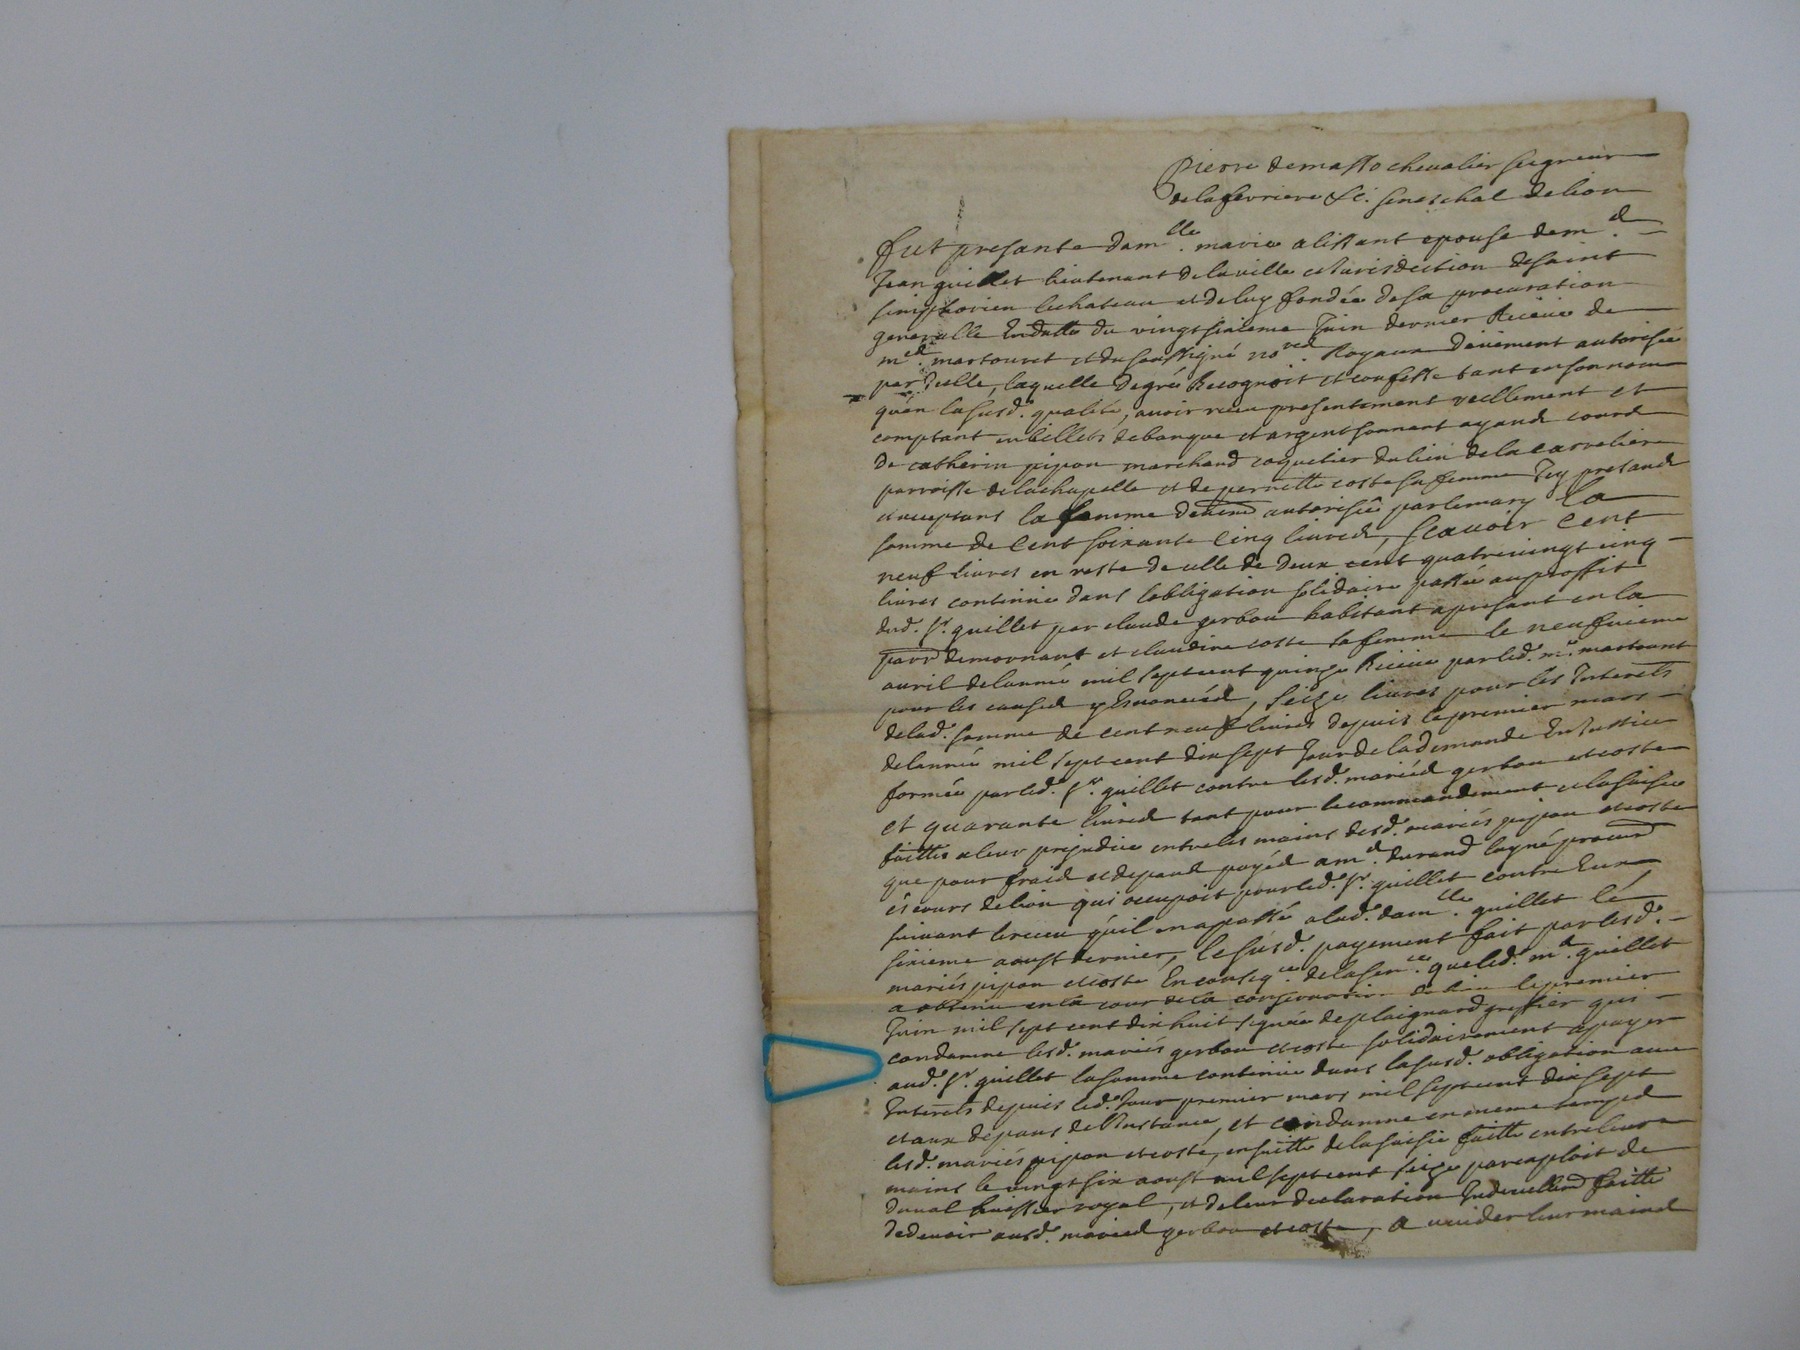 Pierre demasso chevalier seigneur
delaferriere &c. seneschal delion
fut presante dam.lle marie alissant epouse dem.d
Jean guillet lieutenant delaville et Jurisdiction desaint
simphorien lechateau et deluy fondée desa procuration
generalle du vingt sixieme Juin dernier Receüe de
martouret et du soussigné Royaux düement autorisée
par Icelle, laquelle degré Recognoit et confesse tant ensonnom
qu'en lasusd. qualité, avoir receu presentement reellement et
comptant enbillets debanque et argent sonnant ayand cours
de catherin pipon marchand coquetier dulieu delacarreliere
parroisse delachapelle et de pernette coste sa femme Icy presand
et acceptans la femme autorisée parlemary la
somme de Cent soixante Cinq livred, scavoir Cent
neuf livres en reste de celle de deux cent quatrevingt cinq
livres contenüe dans l'obligation solidaire passée auproffit
dud. sr. guillet par claude gerbou habitant apresant en la
parr demornant et claudine coste sa femme le neufvieme
avril delannée mil sept cent quinze Receüe parled. me. martouret
pour les caused y Enoncéed, Seize livres pour les Interets
delad. somme de cent neuf livres depuis lepremier mars
delannée mil sept cent dix sept Jour de lademande En Justice
formée parled. sr. guillet contre lesd. mariéd gerbou et coste
et quarante livred tant pour lecommandement et lasaisie
faittes aleur prejudice entre les mains desd. mariés pipon et coste
que pour fraid et depand payéd a me. durand layné procur
és cours delion qui occupoit pourled. sr. guillet contre Eux,
suivant lreceu qu'il en apassé alad. dam.lle guillet le
sixieme aoust dernier, le susd. payement fait parlesd.
mariés pipon et coste En conseq.ce delasen.ce queled. guillet
a obtenu en la cour de la conservation de lion lepremier
Juin mil sept cent dix huit signée deplaignard greffier qui
condamne lesd. mariés gerbou et coste solidairement apayer
aud. sr. guillet lasomme contenüe dans lasusd. obligation avec
Interets depuis led. Jour premier mars mil sept cent dix sept
et aux depans de l'Instance, et condamne en meme tamped
lesd. mariés pipon et coste, ensuitte de lasaisie faitte entre leurs
mains le vingt six aoust mil sept cent seize parexploit de
duval huissier royal, et de leur declaration faitte
dedevoir ausd. maried gerbou et coste, a vuider leurs maind